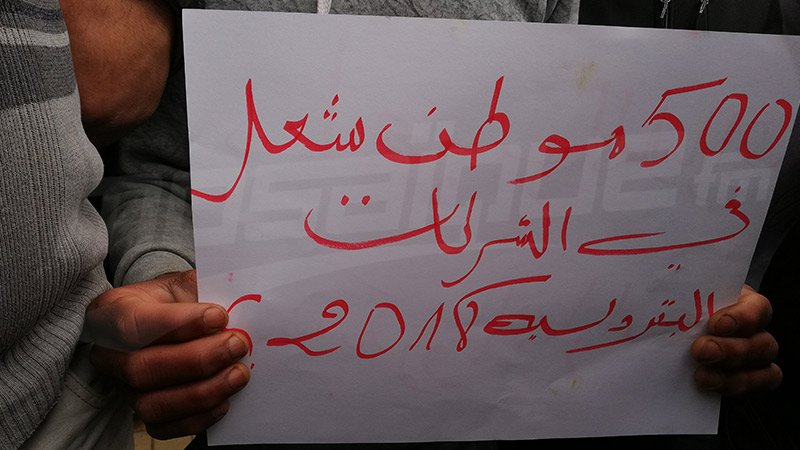 500 موطن شعل
في الشركات
البتروليه 2018 ؟